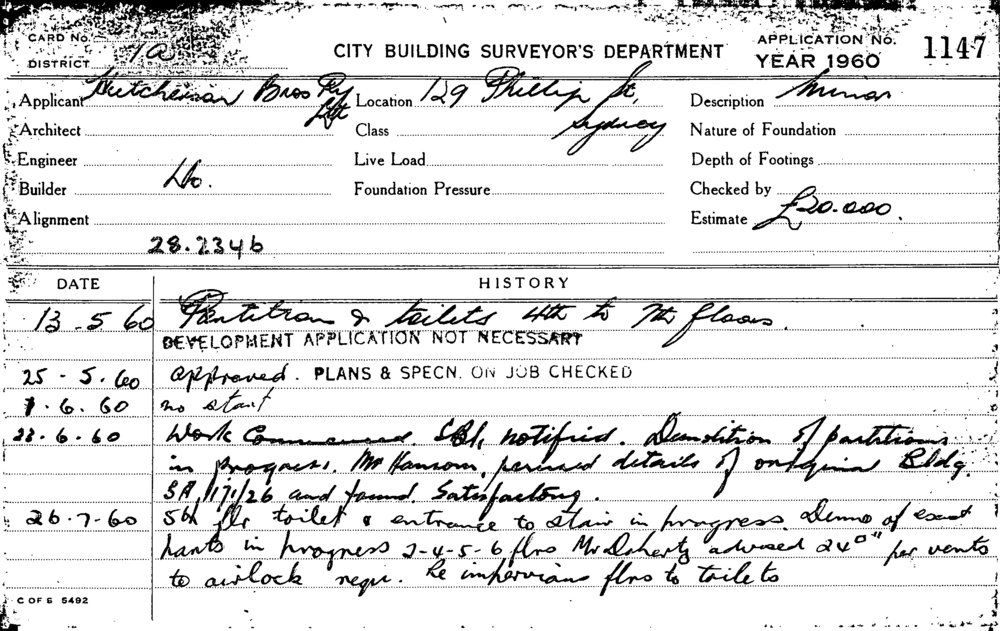 CARD No.
DISTRICT 1a
CITY BUILDING SURVEYOR'S DEPARTMENT
APPLICATION No. 1147
YEAR 1960
Applicant Hutcherson Bros Pty Ltd
Location 129 Phillip St, Sydney
Description Minor
Architect
Class
Nature of Foundation
Engineer
Live Load
Depth of Footings
Builder Do.
Foundation Pressure
Checked by
Alignment
Estimate £20.000.
28.2346
DATE HISTORY
13 - 5 60 Partitions & toilets 4th to 7th floors.
DEVELOPMENT APPLICATION NOT NECESSARY
25 - 5. 60 approved. PLANS & SPECN. ON JOB CHECKED
1. 6. 60 no start
23. 6. 60 Work Commenced. notified. Demolition of partitions
in progress. Mr Hansom, perused details of original Bldg.
171/26 and found Satisfactory.
26-7-60 5th flr toilet & entrance to stair in progress. Demo of
in progress 2-4-5-6 flrs Mr Doherty advised 24□" per vents
to airlock requ. Re impervious flrs to toilets
C OF S 5492